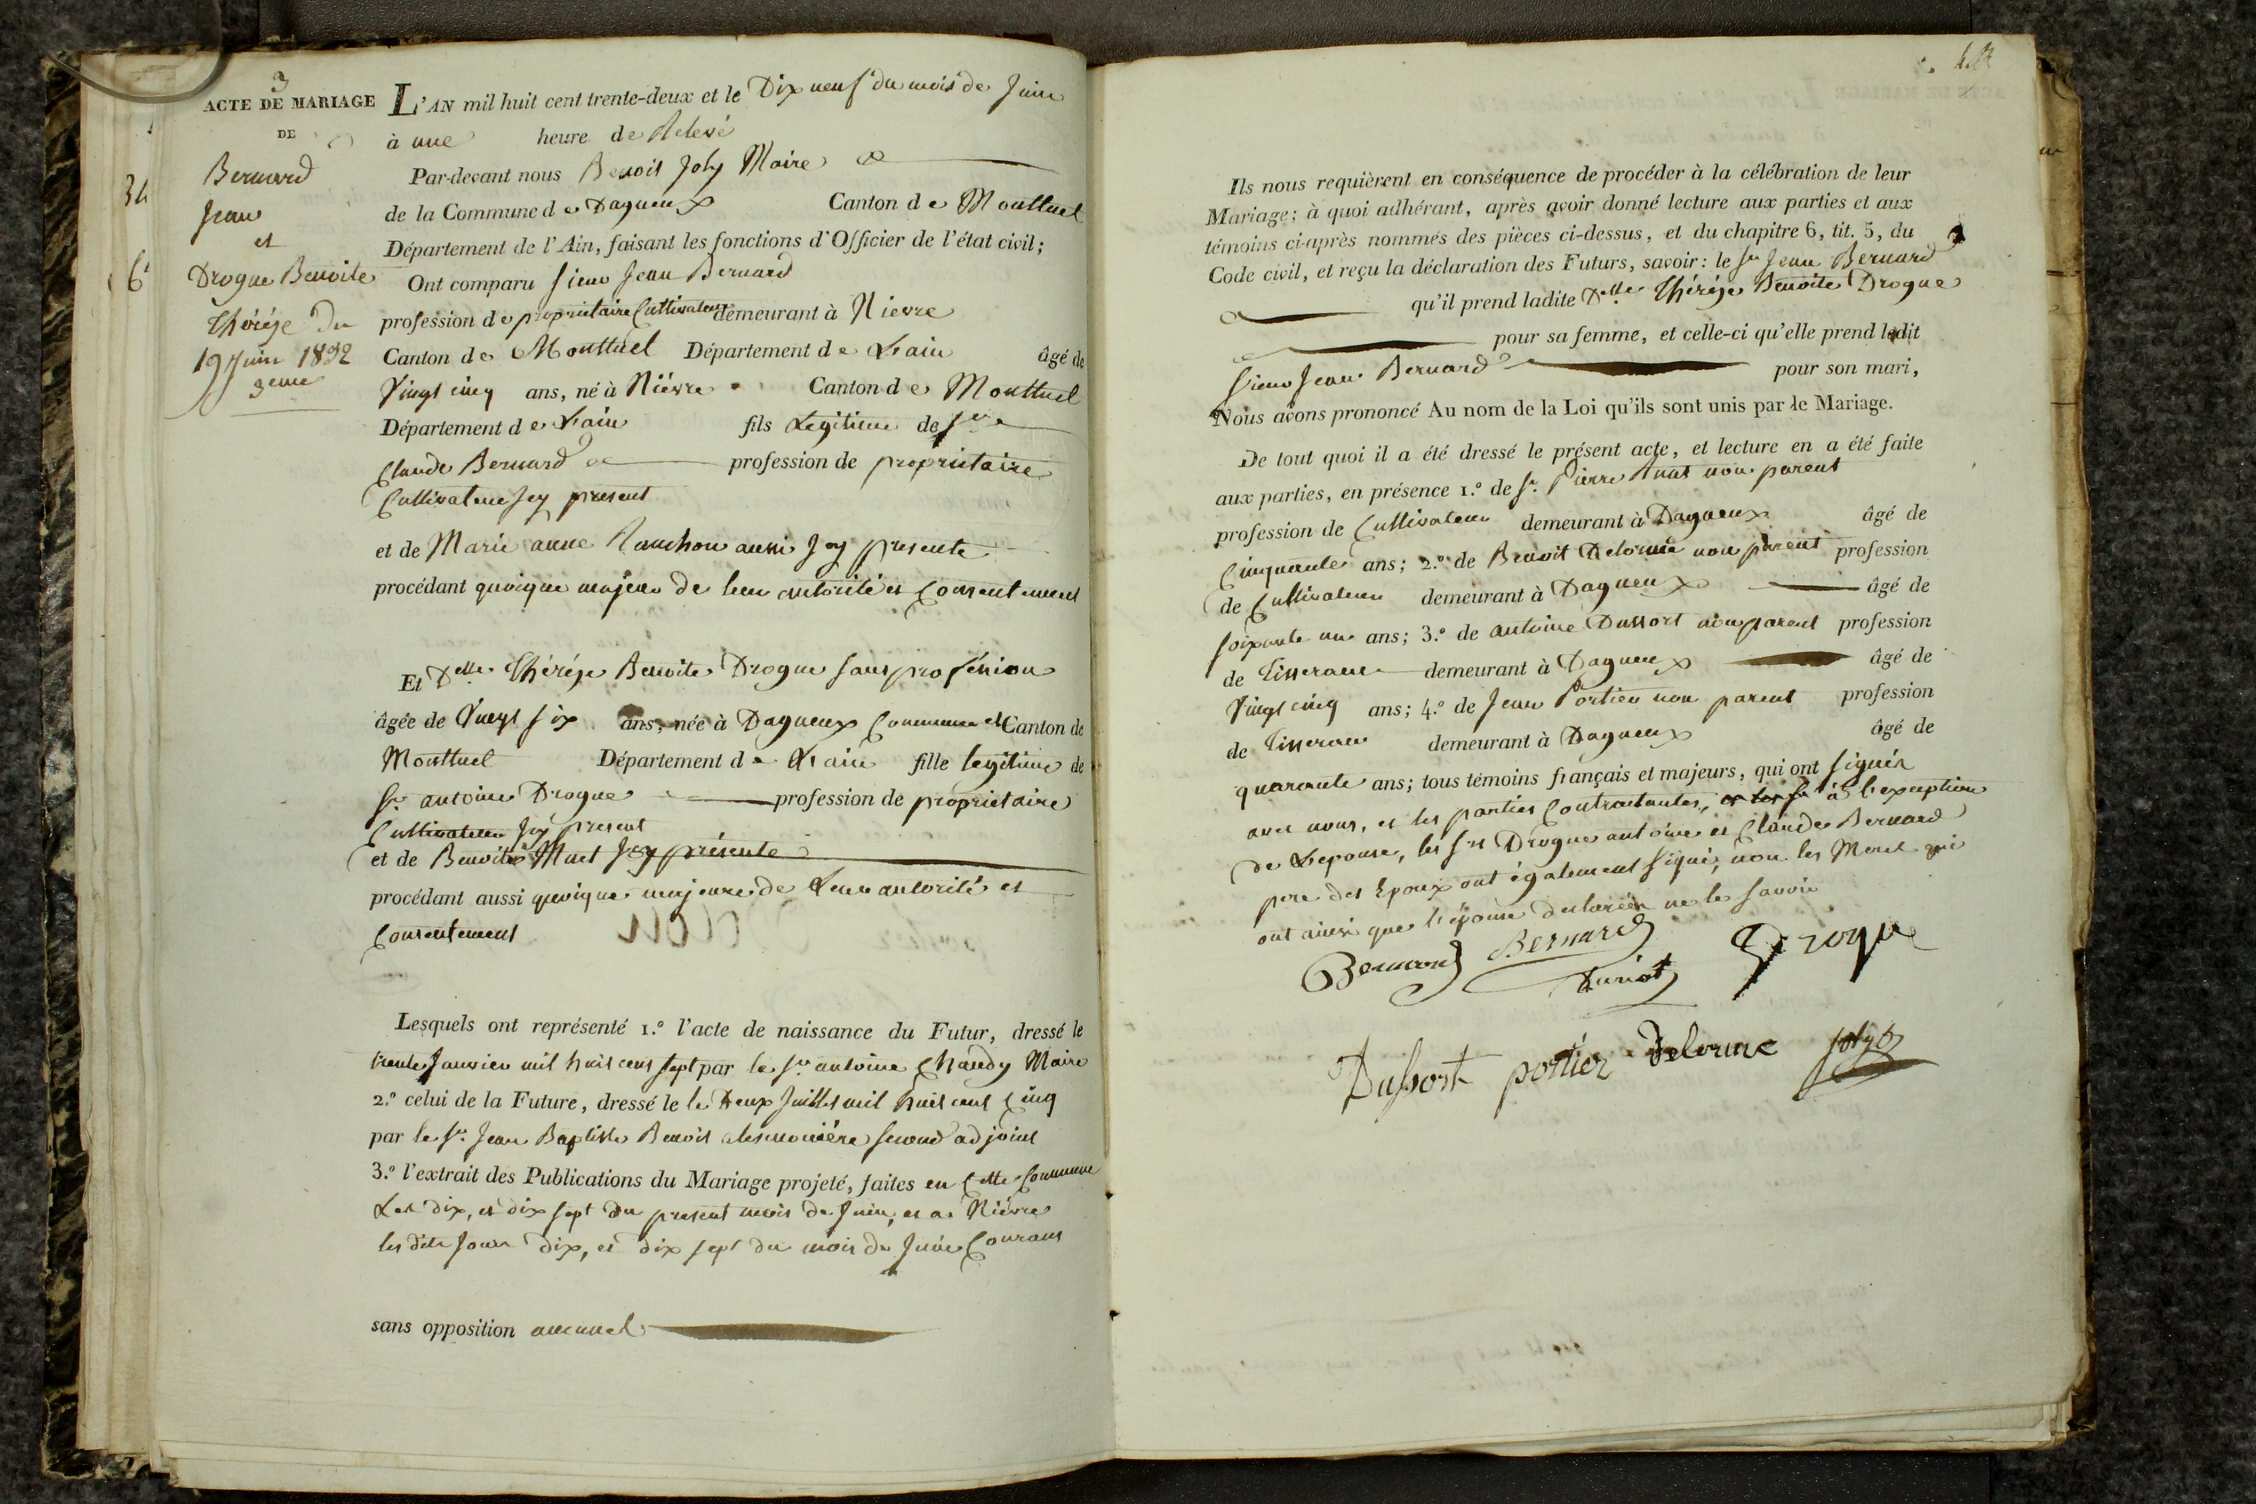 3
ACTE DE MARIAGE
DE
Bernard
Jean
et
Drogue Benoite
Thérèze Du
19 Juin 1832
3eme
L'AN mil huit cent trente-deux et le Dix neuf du mois de Juin
à une heure de Relevé
Par-devant nous Benoit Joly Maire
de la Commune de Dagneux Canton de Montluel
Département de l'Ain, faisant les fonctions d'Officier de l'état civil;
Ont comparu Sieur Jean Bernard
profession de proprietaire Cultivateur demeurant à Nievre
Canton de Montluel Département de L'ain âgé de
Vingt cinq ans, né à Niévre Canton de Montluel
Département de L'ain fils Legitime de Sr
Claude Bernard profession de proprietaire
Cultivateur Icy present
et de Marie anne aussi Icy presente
procédant quoique majeur de leur autorité et Consentement
Et Delle Thérèze Benoite Drogue sans profession
âgée de Vingt six ans, née à Dagneux Commune et Canton de
Montluel Département de L'ain fille legitime de
Sr antoine Drogue profession de proprietaire
Cultivateur Icy present
et de Benoite Muet Icy présente
procédant aussi quoique majeure de Leur autorité et
Consentement
Lesquels ont représenté 1.º l'acte de naissance du Futur, dressé le
trente Janvier mil huit cent sept par le Sr antoine Chaudy Maire
2.º celui de la Future, dressé le le Deux Juillet mil huit cent Cinq
par le Sr Jean Baptiste Benoit second adjoint
3.º l'extrait des Publications du Mariage projeté, faites en Cette Commune
Les dix, et dix sept du present mois de Juin, et a Niévre
les dits Jours dix, et dix sept du mois de Juin Courant
sans opposition aucune
Ils nous requièrent en conséquence de procéder à la célébration de leur
Mariage; à quoi adhérant, après avoir donné lecture aux parties et aux
témoins ci-après nommés des pièces ci-dessus, et du chapitre 6, tit. 5, du
Code civil, et reçu la déclaration des Futurs, savoir: le Sr Jean Bernard
qu'il prend ladite Delle Thérèze Benoite Drogue
pour sa femme, et celle-ci qu'elle prend ledit
Sieur Jean Bernard pour son mari,
Nous avons prononcé Au nom de la Loi qu'ils sont unis par le Mariage.
De tout quoi il a été dressé le présent acte, et lecture en a été faite
aux parties, en présence 1.º de Sr Pierre non parent
profession de Cultivateur demeurant à Dagneux âgé de
Cinquante ans; 2.º de Benoit Delorme non parent profession
de Cultivateur demeurant à Dagneux âgé de
soixante un ans; 3.º de antoine Dussort non parent profession
de Tisserant demeurant à Dagneux âgé de
Vingt cinq ans; 4.º de Jean Portier non parent profession
de Tisseran demeurant à Dagneux âgé de
quarante ans; tous témoins français et majeurs, qui ont signés
avec nous, et les parties Contractantes, à l'exception
de Lepouse, les Srs Drogue antoine et Claude Bernard
pere des Epoux ont également signé, non les Meres qui
ont ainsi que l'épouse declarées ne le savoir
Bernard Bernard Drogue
Dussort portier Delorme Joly